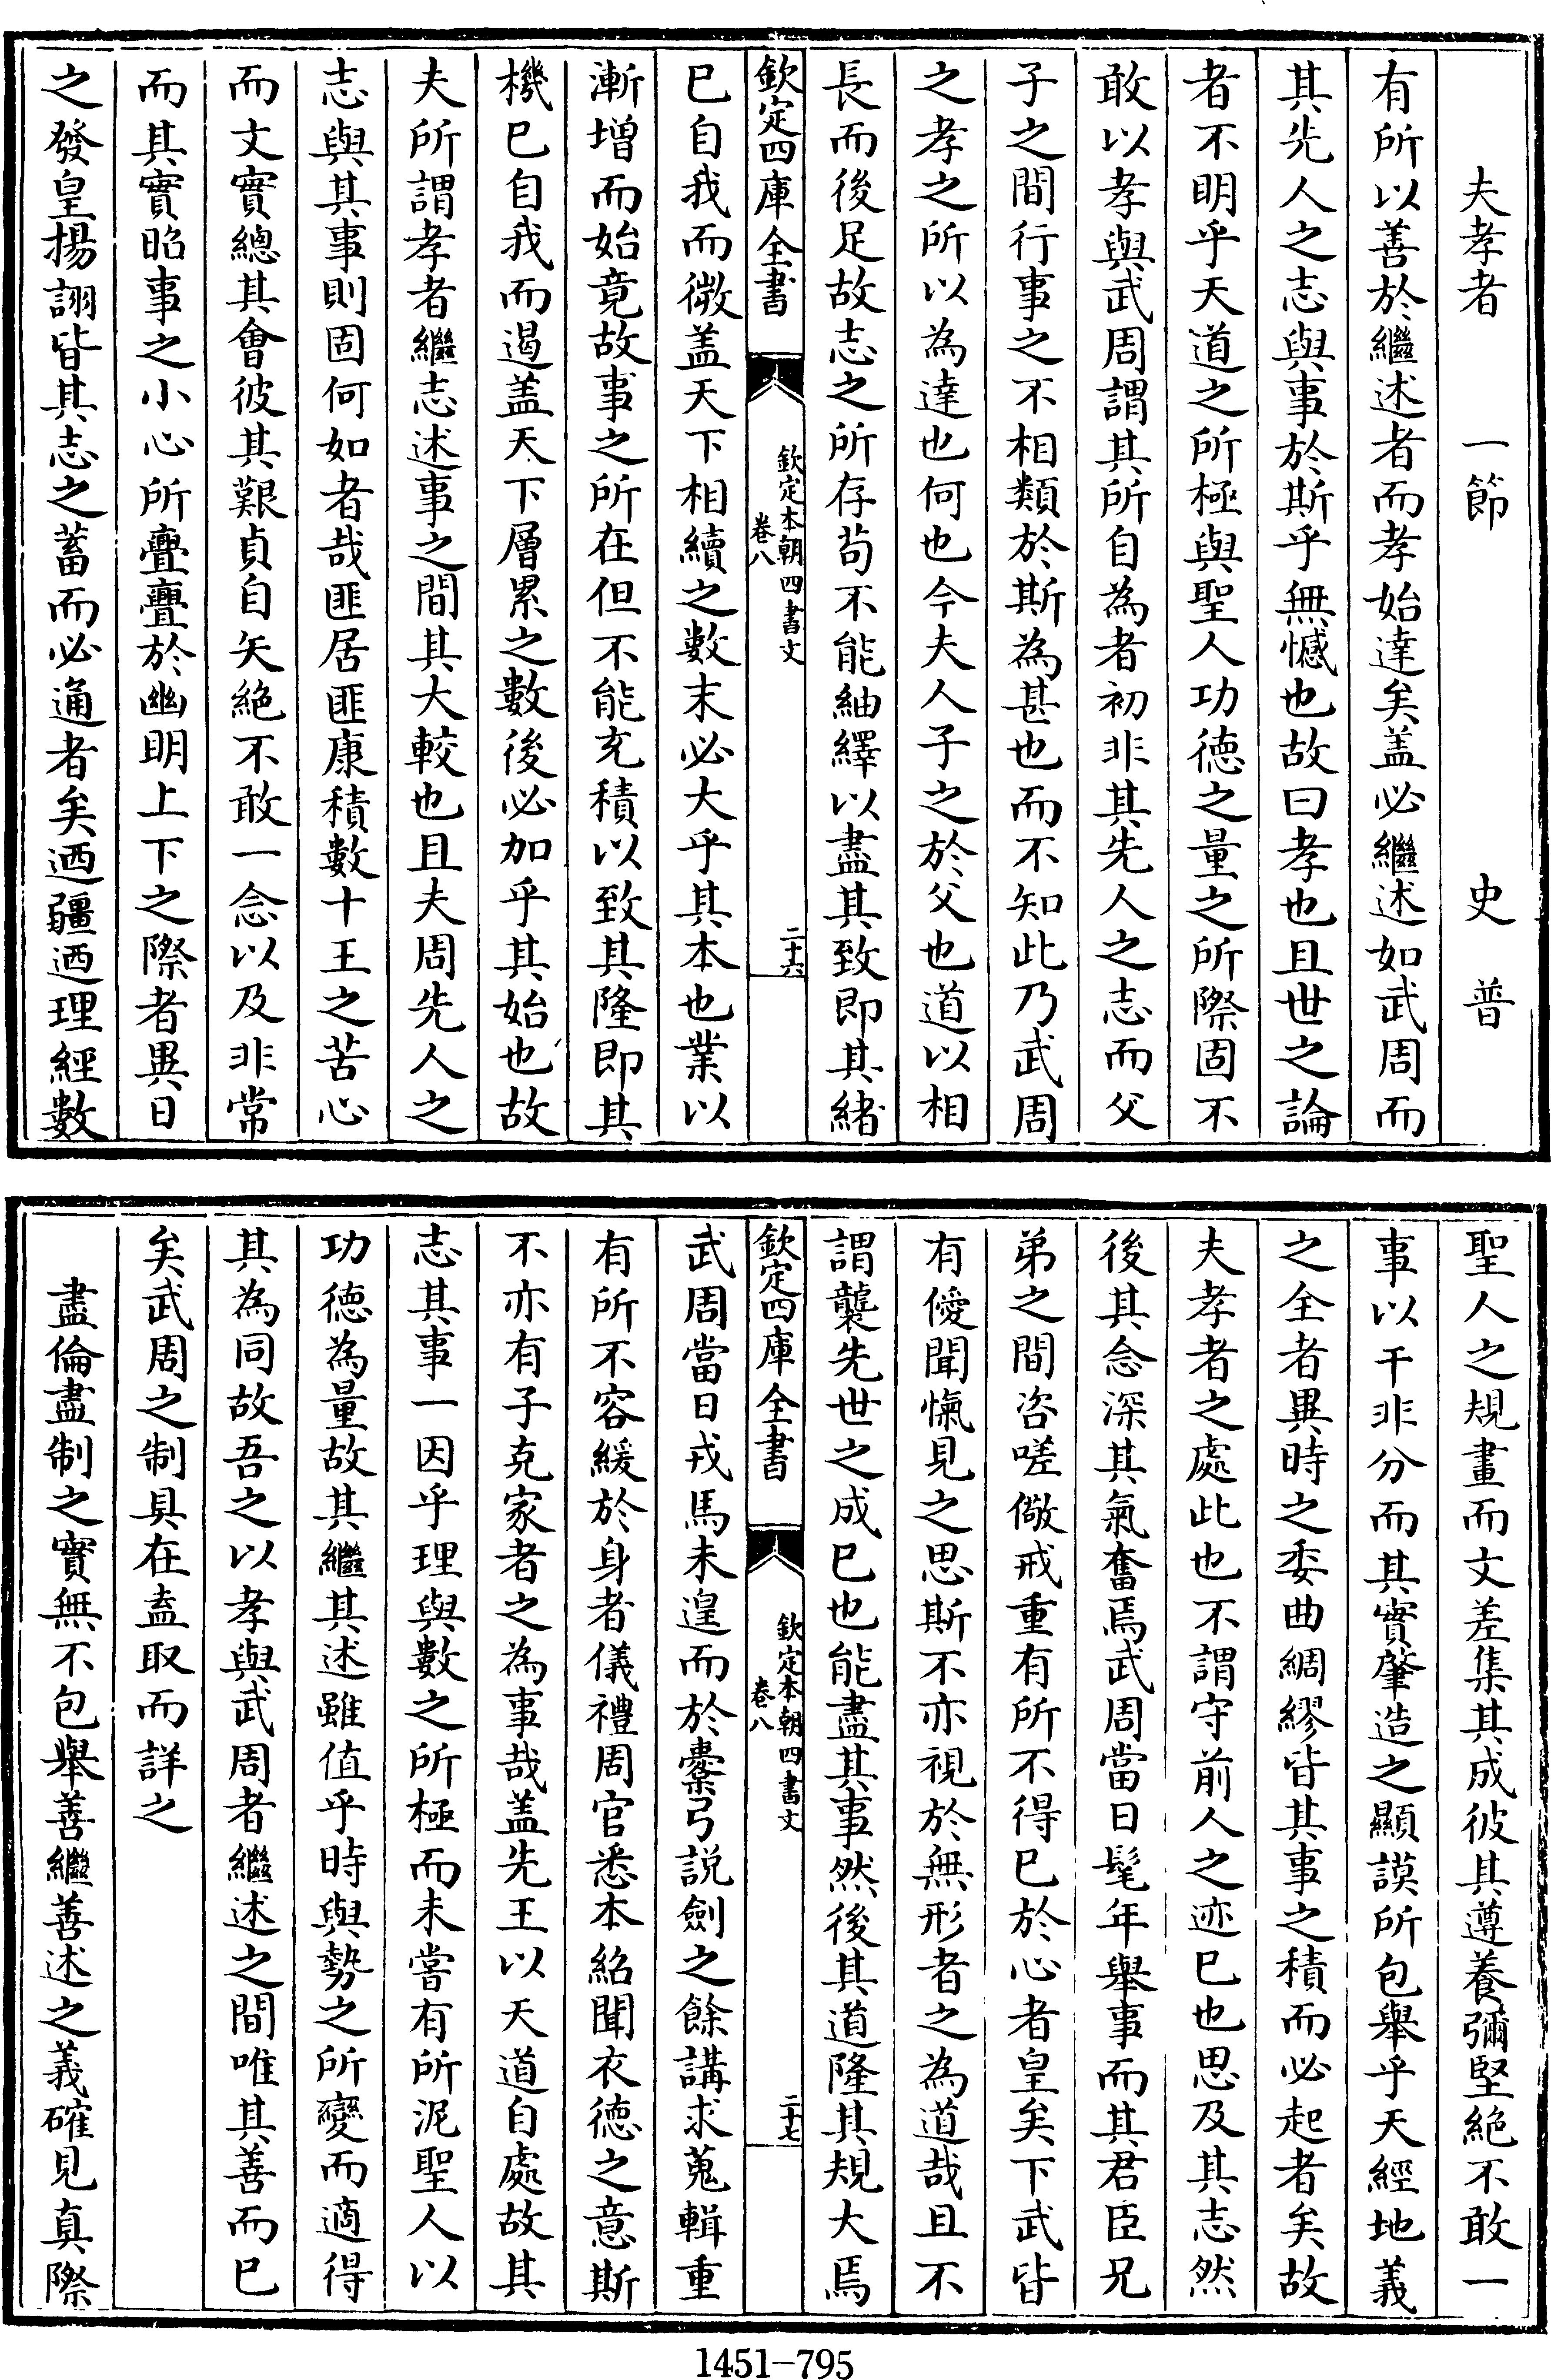 夫孝者　一節　史　普
有所以善於繼述者而孝始達矣盖必繼述如武周而
其先人之志與事於斯乎無憾也故曰孝也且世之論
者不明乎天道之所極與聖人功德之量之所際固不
敢以孝與武周謂其所自為者初非其先人之志而父
子之間行事之不相類於斯為甚也而不知此乃武周
之孝之所以為達也何也今夫人子之於父也道以相
長而後足故志之所存茍不能紬繹以盡其致即其緒
欽定四庫全書
欽定本朝四書文
卷八
二十六
已自我而微盖天下相續之數末必大乎其本也業以
漸增而始竟故事之所在但不能充積以致其隆即其
機已自我而遏盖天下層累之數後必加乎其始也故
夫所謂孝者繼志述事之間其大較也且夫周先人之
志與其事則固何如者哉匪居匪康積數十王之苦心
而文實總其會彼其艱貞自矢絕不敢一念以及非常
而其實昭事之小心所亹亹於幽明上下之際者異日
之發皇揚詡皆其志之蓄而必通者矣迺疆迺理經數
聖人之規畫而文差集其成彼其遵養彌堅絕不敢一
事以干非分而其實肇造之顯謨所包舉乎天經地義
之全者異時之委曲綢繆皆其事之積而必起者矣故
夫孝者之處此也不謂守前人之迹已也思及其志然
後其念深其氣奮焉武周當日髦年舉事而其君臣兄
弟之間咨嗟儆戒重有所不得已於心者皇矣下武皆
有僾聞愾見之思斯不亦視於無形者之為道哉且不
謂襲先世之成已也能盡其事然後其道隆其規大焉
欽定四庫全書
欽定本朝四書文
卷八
二十七
武周當日戎馬未遑而於櫜弓説劍之餘講求蒐輯重
有所不容緩於身者儀禮周官悉本紹聞衣德之意斯
不亦有子克家者之為事哉盖先王以天道自處故其
志其事一因乎理與數之所極而未嘗有所泥聖人以
功德為量故其繼其述雖值乎時與勢之所變而適得
其為同故吾之以孝與武周者繼述之間唯其善而已
矣武周之制具在盍取而詳之
盡倫盡制之實無不包舉善繼善述之義確見真際
1451-795